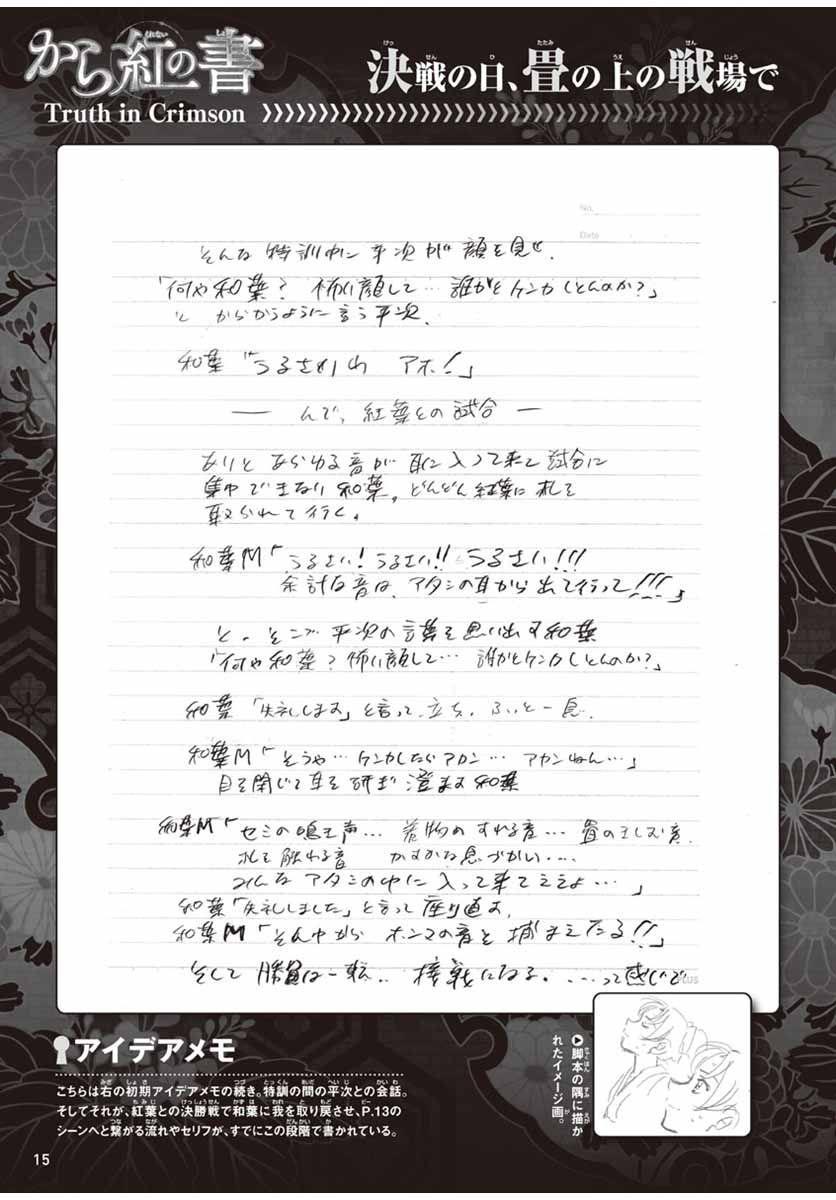 から紅の書
Truth in Crimson
決戦の日、畳の上の戦場で
No.
Date
そんな特訓中に平次が顔を見せ、
「何や和葉？ 怖い顔して… 誰かとケンカしとんのか？」
と からかうように言う平次、
和葉「うるさいわ アホ！」
― んで、紅葉との試合 ―
ありと あらゆる音が 耳に入って来て 試合に
集中できない和葉。どんどん紅葉に札を
取られて行く。
和葉M「うるさい！うるさい!!うるさい!!!
余計な音は、アタシの耳から出て行って!!!」
と、そこで 平次の言葉を思い出す和葉
「何や和葉？怖い顔して… 誰かとケンカしとんのか？」
和葉「失礼します」と言って、立ち、ふぅと一息、
和葉M「そうや…ケンカしたらアカン… アカンねん…」
目を閉じて耳を研ぎ澄ます和葉
和葉M「セミの鳴き声… 着物のすれる音… 畳のきしむ音、
札を触わる音 かすかな息づかい‥‥
みんな アタシの中に 入って来てええよ…」
和葉「失礼しました」と言って座り直す、
和葉M「そん中から ホンマの音を 捕まえたる!!」
そして 勝負は一転‥ 接戦になる、‥‥って感じで
アイデアメモ
こちらは右の初期アイデアメモの続き。特訓の間の平次との会話。
そしてそれが、紅葉との決勝戦で和葉に我を取り戻させ、P.13の
シーンへと繋がる流れやセリフが、すでにこの段階で書かれている。
▶脚本の隅に描か
れたイメージ画。
15